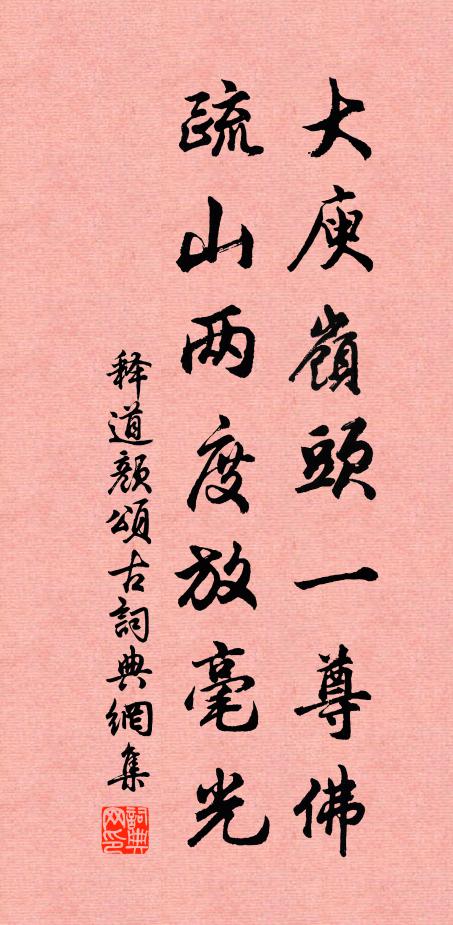 大庾嶺頭一尊佛
疏山两度放毫光
释道颜頌古詞典網集
詞典网印